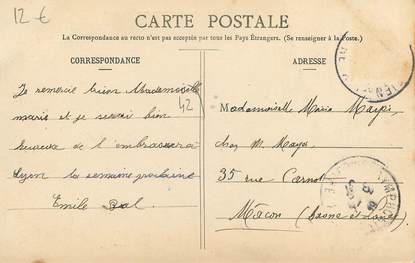 12 €
CARTE POSTALE
La Correspondance au recto n'est pas acceptée par tous les Pays Étrangers. (Se renseigner à la Poste.)
CORRESPONDANCE
Je remercie bien Mademoiselle
maris et je serai bien
heureux de l'embrasser à
Lyon la semaine prochaine
Emile
42
ADRESSE
Mademoiselle Maria
chez M.
35 rue Carnot
Mâcon (Saone et Loire)